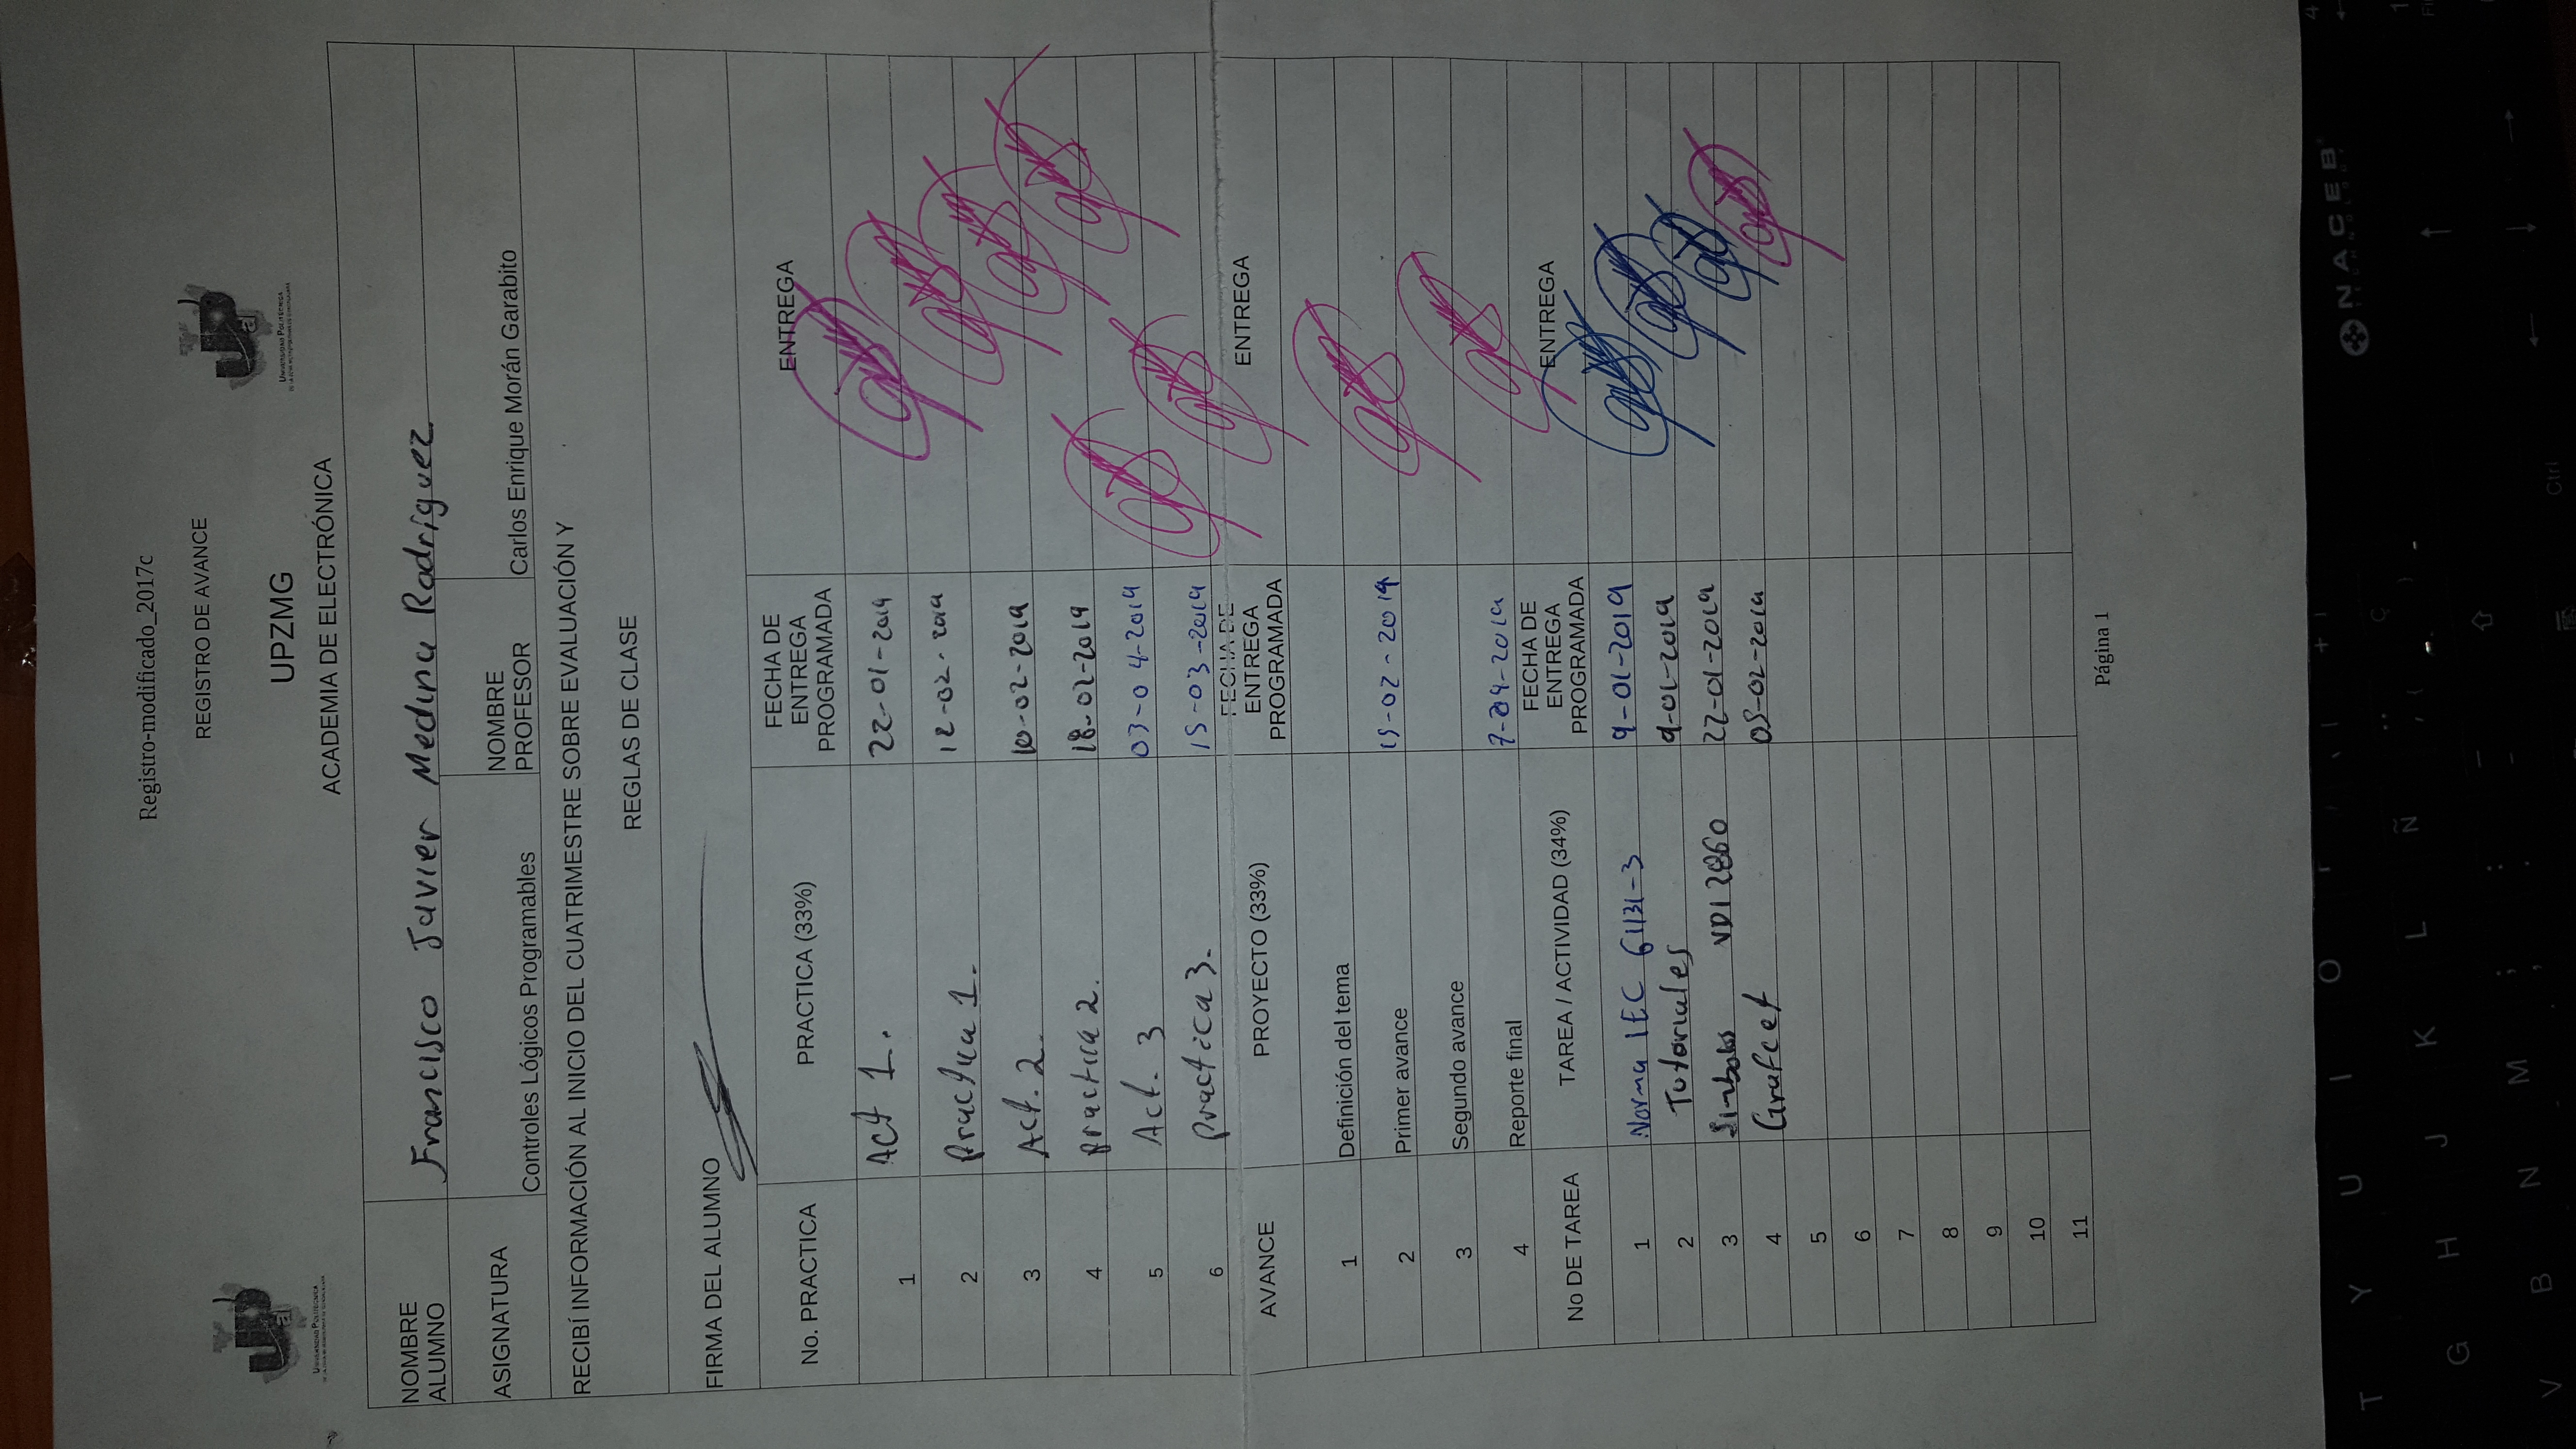 Registro-modificado_2017c
REGISTRO DE AVANCE
UPZMG
ACADEMIA DE ELECTRÓNICA
UNIVERSIDAD POLITÉCNICA
UNIVERSIDAD POLITÉCNICA
NOMBRE ALUMNO Francisco Javier Medina Rodríguez
ASIGNATURA Controles Lógicos Programables NOMBRE PROFESOR Carlos Enrique Morán Garabito
RECIBÍ INFORMACIÓN AL INICIO DEL CUATRIMESTRE SOBRE EVALUACIÓN Y
REGLAS DE CLASE
FIRMA DEL ALUMNO
No. PRACTICA PRACTICA (33%) FECHA DE ENTREGA PROGRAMADA ENTREGA
1 Act 1. 22-01-2019
2 Practica 1. 12-02-2019
3 Act. 2. 10-02-2019
4 practica 2. 18-02-2019
5 Act. 3 03-04-2019
6 practica 3. 15-03-2019
AVANCE PROYECTO (33%) FECHA DE ENTREGA PROGRAMADA ENTREGA
1 Definición del tema
2 Primer avance 15-02-2019
3 Segundo avance
4 Reporte final 7-04-2019
No DE TAREA TAREA / ACTIVIDAD (34%) FECHA DE ENTREGA PROGRAMADA ENTREGA
1 Norma IEC 61131-3 9-01-2019
2 Tutoriales 9-01-2019
3 Simbolos VDI 2860 22-01-2019
4 Grafcet 05-02-2019
5
6
7
8
9
10
11
Página 1
T Y U I O
NACEB
TECHNOLOGY
G H J K L Ñ
V B N M
Ctrl